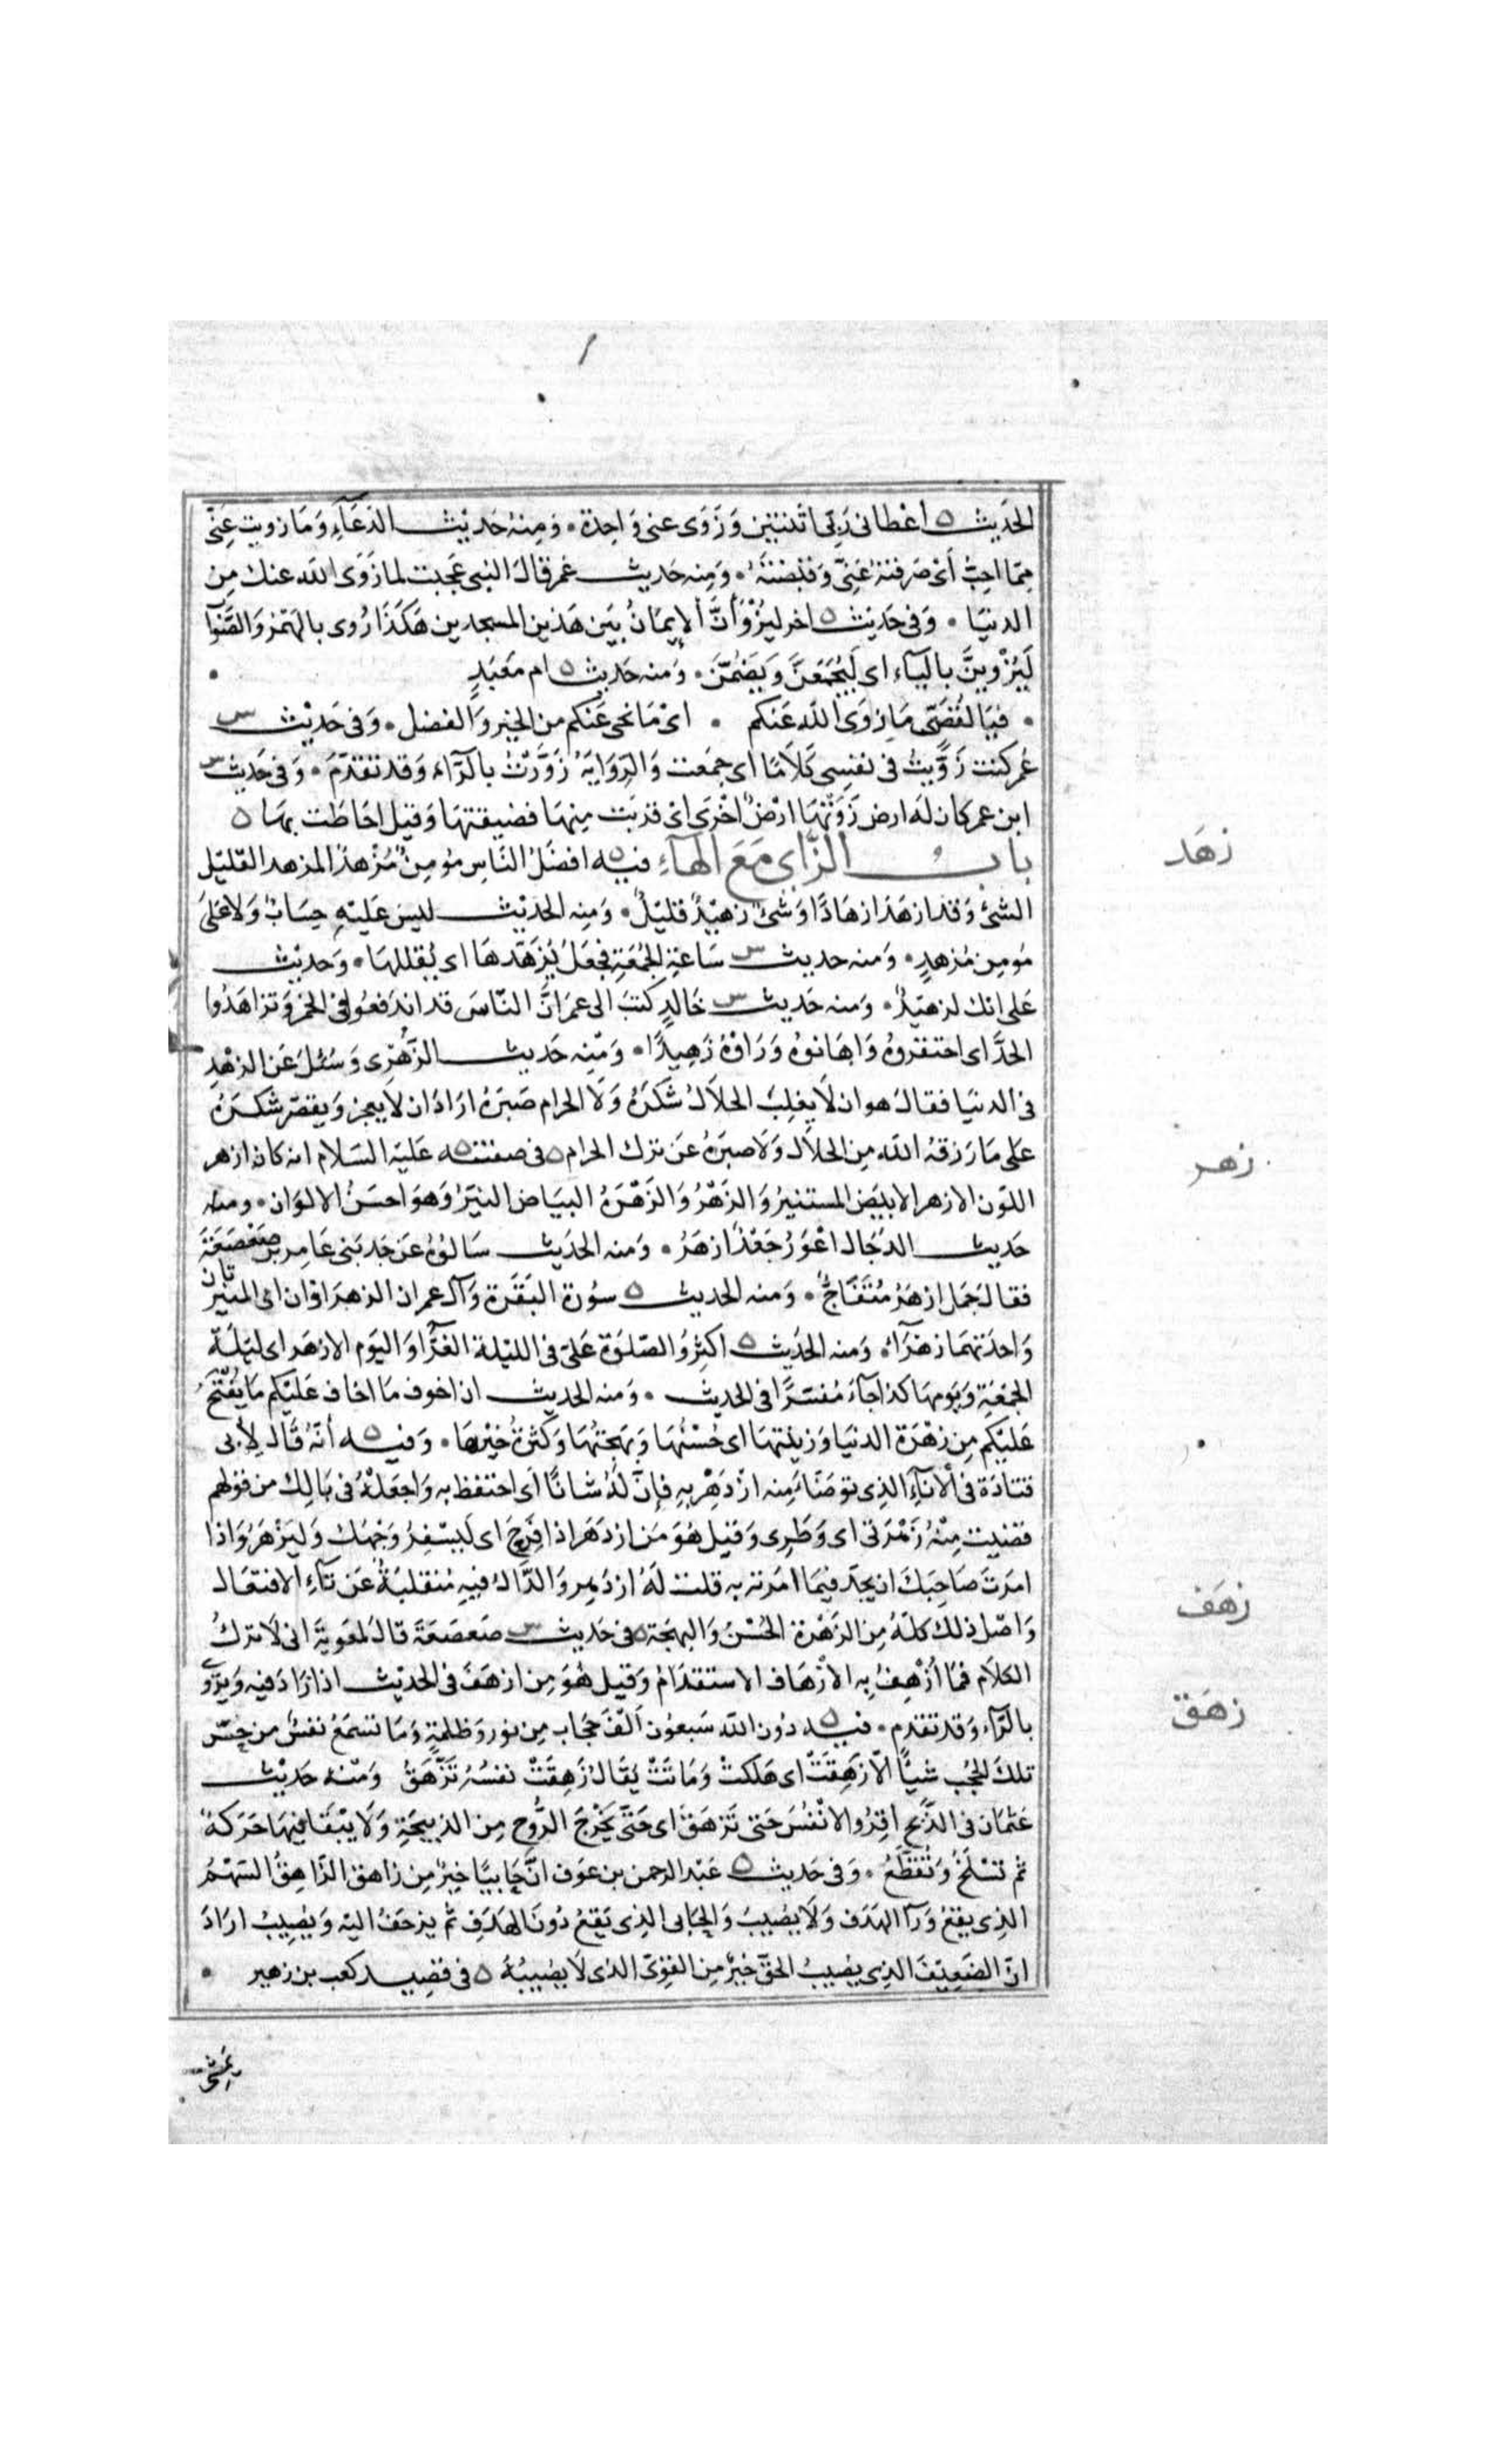 الحديث ه اعطانى ربى اثنتين وزوى عنى واحدة • ومنه حديث الدعاء وما زويت عنى
مما احب أى صرفته عنى وقبضته • ومنه حديث عمر قال النبى عجبت لما زوى الله عنك من
الدنيا • وفى حديث ه اخر ليزوأن الإيمان بين هذين المسجدين هكذا روى بالهمز والصواب
ليزوين بالياء اى ليجمعن ويضمن • ومنه حديث ه ام معبد •
• فيا لقصى ما زوى الله عنكم • اى ما نحى عنكم من الخير والفضل • وفى حديث س
عمر كنت زويت فى نفسى كلاما اى جمعت والرواية زورت بالراء وقد تقدم • وفى حديث س
ابن عمر كان له ارض زوتها ارض اخرى اى قربت منها فضيقتها وقيل احاطت بها ه
باب الزاى مع الهاء فيه ه افضل الناس مؤمن مزهد المزهد القليل
الشئ وقد ازهد ازهادا وشئ زهيد قليل • ومنه الحديث ليس عليه حساب ولا على
مؤمن مزهد • ومنه حديث س ساعة الجمعة فجعل يزهدها اى يقللها • وحديث
على انك لزهيد • ومنه حديث س خالد كتب الى عمر ان الناس قد اندفعوا فى الخمر وتزاهدوا
الحد اى احتقروه واهانوه ورأوه زهيدا • ومنه حديث الزهرى وسئل عن الزهد
فى الدنيا فقال هو ان لا يغلب الحلال شكره ولا الحرام صبره اراد ان لا يعجز ويقصر شكره
على ما رزقه الله من الحلال ولا صبره عن ترك الحرام ه فى صفته ه عليه السلام انه كان ازهر
اللون الازهر الابيض المستنير والزهر والزهرة البياض النير وهو احسن الالوان • ومنه
حديث الدجال اعور جعد ازهر • ومنه الحديث سالوه عن جد بنى عامر بن صعصعة
فقال جمل ازهر متفاج • ومنه الحديث ه سورة البقرة وآل عمران الزهراوان اى المنيرتان
واحدتهما زهراء • ومنه الحديث ه اكثروا الصلوة على فى الليلة الغرا واليوم الازهر اى ليلة
الجمعة ويومها كذا جآء مفسرا فى الحديث • ومنه الحديث ان اخوف ما اخاف عليكم ما يفتح
عليكم من زهرة الدنيا وزينتها اى حسنها وبهجتها وكثرة خيرها • وفيه ه أنه قال لأبى
قتادة فى الاناء الذى توضأ منه ازدهر به فإن له شانا اى احتفظ به واجعله فى بالك من قولهم
قضيت منه زهرتى اى وطرى وقيل هو من ازدهر اذا فرح اى ليسفر وجهك وليزهر واذا
امرت صاحبك ان يجد فيما امرته به قلت له ازدهر والدال فيه منقلبة عن تآء الافتعال
واصل ذلك كله من الزهرة الحسن والبهجة ه فى حديث س صعصعة قال لمعوية انى لا ترك
الكلام فما أزهف به الازهاف الاستقدام وقيل هو من ازهف فى الحديث اذا زاد فيه ويروى
بالراء وقد تقدم • فيه ه دون الله سبعون الف حجاب من نور وظلمة وما تسمع نفس من حس
تلك الحجب شيأ الا زهقت اى هلكت وماتت يقال زهقت نفسه تزهق ومنه حديث
عثمان فى الذبح اقروا الانفس حتى تزهق اى حتى يخرج الروح من الذبيحة ولا يبقا فيها حركة
ثم تسلخ وتقطع • وفى حديث ه عبد الرحمن بن عوف ان حابيا خير من زاهق الزاهق السهم
الذى يقع ورآ الهدف ولا يصيب والحابى الذى يقع دون الهدف ثم يزحف اليه ويصيب اراد
ان الضعيف الذى يصيب الحق خير من القوى الذى لا يصيبه ه فى قصيد كعب بن زهير •
زهد
زهر
زهف
زهق
يمشى